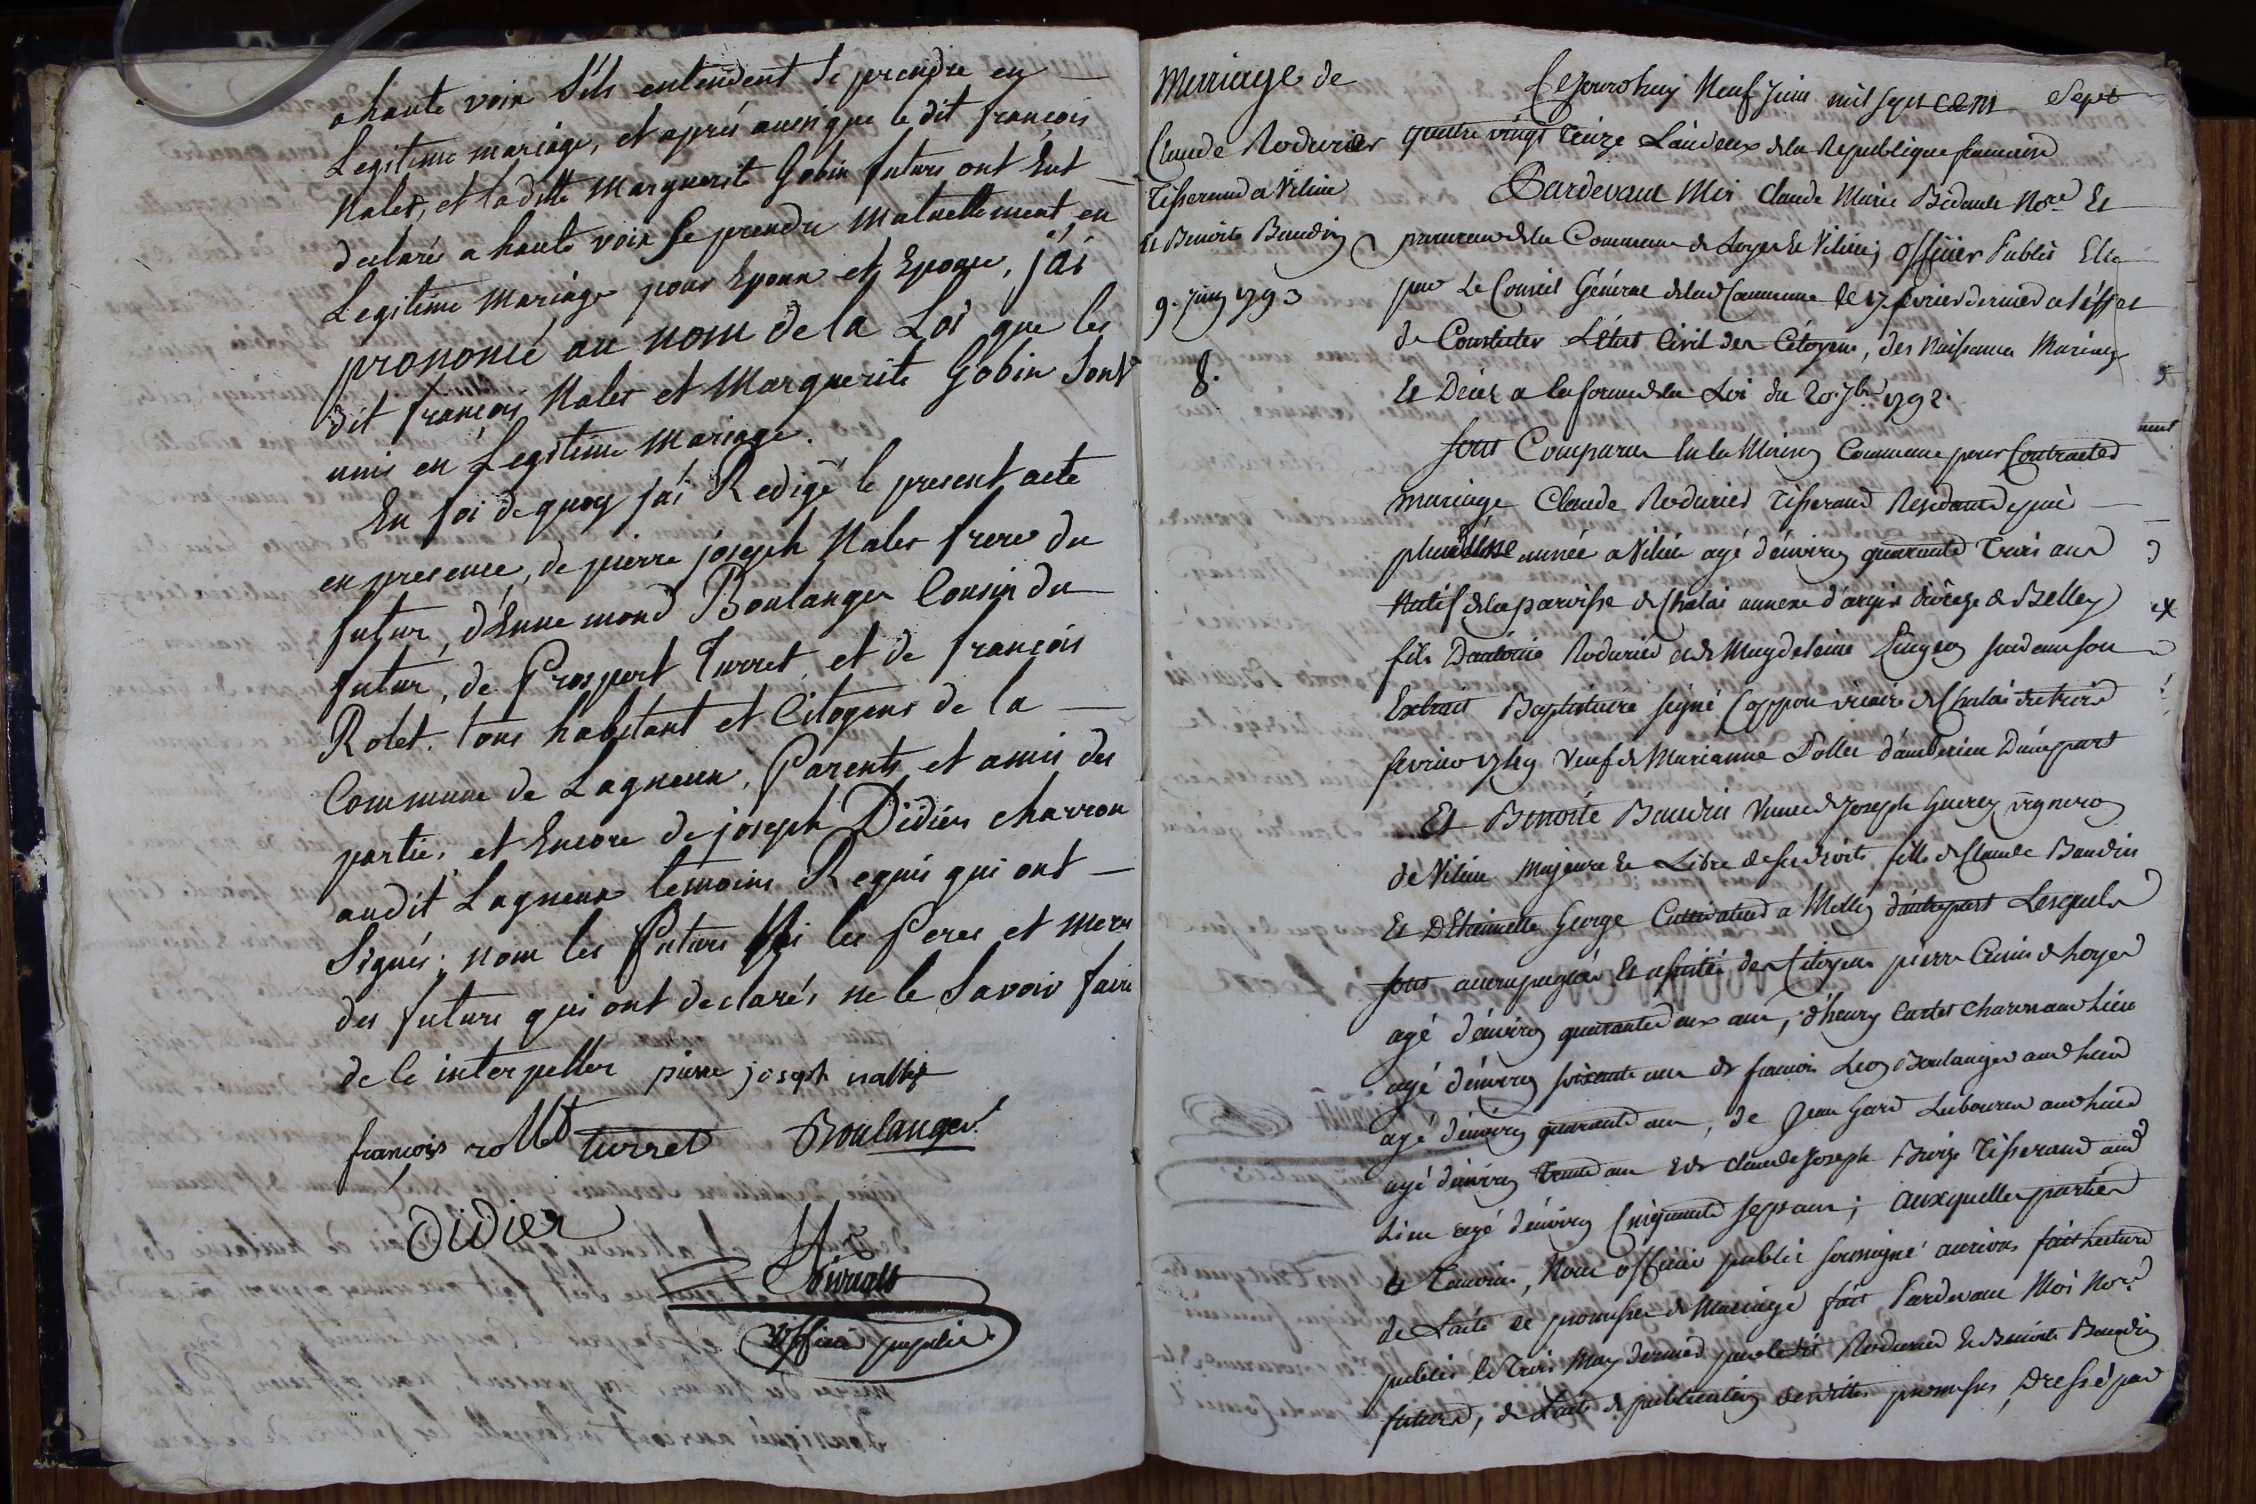 a haute voix s'ils entendent se prendre en
Legitime mariage, et après aussi que le dit françois
Nalet, et la ditte Marguerite Gobin futurs ont Eut
declaré a haute voix se prendre mutuellement en
Legitime mariage pour Epoux et Epouse, j'ai
prononcé au nom de la Loi que les
dit françois Nalet et Marguerite Gobin Sont
unis en Legitime mariage.
En foi de quoy j'ai Redigé le present acte
en presence, de pierre joseph Nalet frere du
futur, d'Ennemond Boulanger Cousin du
futur, de Prospert Turret, et de françois
Rolet. tous habitant et Citoyens de la
Commune de Lagneux, Parents et amis des
partie, et Encore de joseph Didier charron
audit Lagneux temoins Requis qui ont
Signés; nom les futurs Ni les Peres et Meres
des futurs qui ont declarés ne le Savoir faire
de ce interpeller pierre joseph nallet
françois rollet turret Boulanger
Didier
officier puplic
Mariage de
Claude Rodurier
Tisserand a Vilieu
Et Benoite Baudin
9. juin 1793
8.
Cejourdhuy Neuf Juin mil sept cent Sept
quatre vingt Treize L'an deux de la Republique francaise
Pardevant Moi Claude Marie Bidault No.re Et
procureur de la Commune de Loyes Et Vilieu, officier Public Elu
par Le Conseil Général de la d. Commune le 17 fevrier dernier a l'effet
de Constater L'état Civil des Citoyens, des Naissances Mariages
Et Décès a la forme de la Loi du 20 7bre 1792.
Sont Comparus En la Maison Commune pour Contracter
mariage Claude Rodurier Tisserand Residant depuis
plusieurs année a Vilieu agé d'environ quarante Trois ans
Natif de la paroisse de Chalai annexe d'argis diocèze de Belley
fils D'antoine Rodurier et de Magdelaine suivant son
Extrait Baptistaire signé Coppon vicaire de Chalai du trois
fevrier 1749 Veuf de Marianne Pollet d'amberieu D'une part
Et Benoite Baudin Veuve de Joseph Guerey vigneron
de Vilieu Majeure Et Libre de ses droits, fille de Claude Baudin
Et D'Etiennette George Cultivateur a Mollon d'autre part Lesquels
sont accompagnés Et assistés des Citoyens pierre Cusin de Loyes
agé d'environ quarante deux ans, d'henry Cartet Charon aud. lieu
agé d'environ soixante ans de francois Leon Boulanger aud. lieu
agé d'environ quarante ans, de Jean Gard Laboureur aud. lieu
agé d'environ Trente ans Et de Claude Joseph Tisserand aud.
Lieu agé d'environ Cinquante sept ans; auxquelles parties
Et Temoins, Nous officier public soussigné aurions fait Lecture
de L'acte de promesse de Mariage fait Pardevant Moi No.re
public le Trois May dernier par ledit Rodurier Et Benoite Baudin
futurs, de L'acte de publication desdittes promesses, Dressé par